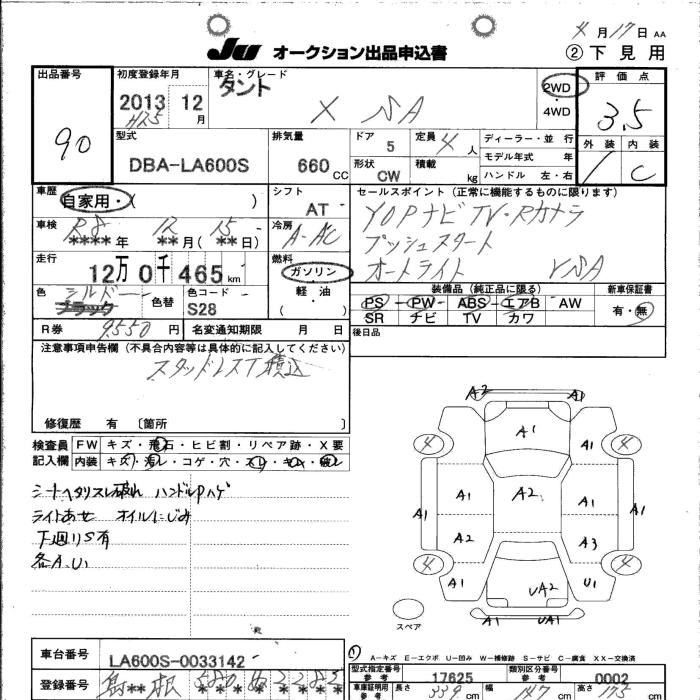 4月17日 AA
JU オークション出品申込書 ②下見用
出品番号 初度登録年月 車名・グレード 評価点
90 2013 12月 タント X SA 2WD 3.5
H25 4WD
型式 排気量 ドア 定員 ディーラー・並行 外装 内装
DBA-LA600S 660cc 5 4人 モデル年式 年 C
形状 CW 積載 kg ハンドル 左・右
車歴 自家用・( ) シフト AT セールスポイント(正常に機能するものに限ります)
車検 R8 12 15 冷房 A-AC TVナビTV・Rカメラ
****年 **月(**日) プッシュスタート
走行 12万0千465km 燃料 ガソリン オートライト
軽・油
( )
色 ブラック 色替 色コード S28
装備品(純正品に限る) 新車保証書
PS-PW-ABS-エアB AW 有・無
SR ナビ TV カワ
R券 9550円 名変通知期限 月 日 後日品
注意事項申告欄(不具合内容等は具体的に記入してください)
スタッドレスT積込
修復歴 有 〔箇所 〕
検査員 FW キズ・飛石・ヒビ割・リペア跡・X要
記入欄 内装 キズ・汚レ・コゲ・穴・スレ・キレ・破レ
シートヘタリスレ破れ ハンドルハゲ
ライトあせ オイルにじみ
下廻りS有
各A.U
A2 A1
4 A1 A1 4
A1 A1 A2 A1 A1
A2 A3
4 A1 UA2 U1 4
A1 UA1
スペア
A-キズ E-エクボ U-凹み W-補修跡 S-サビ C-腐食 XX-交換済
車台番号 LA600S-0033142
型式指定番号 参考 17625 類別区分番号 参考 0002
登録番号 島**根 580
車庫証明用 参考 長さ 339cm 幅 147cm 高さ 175cm